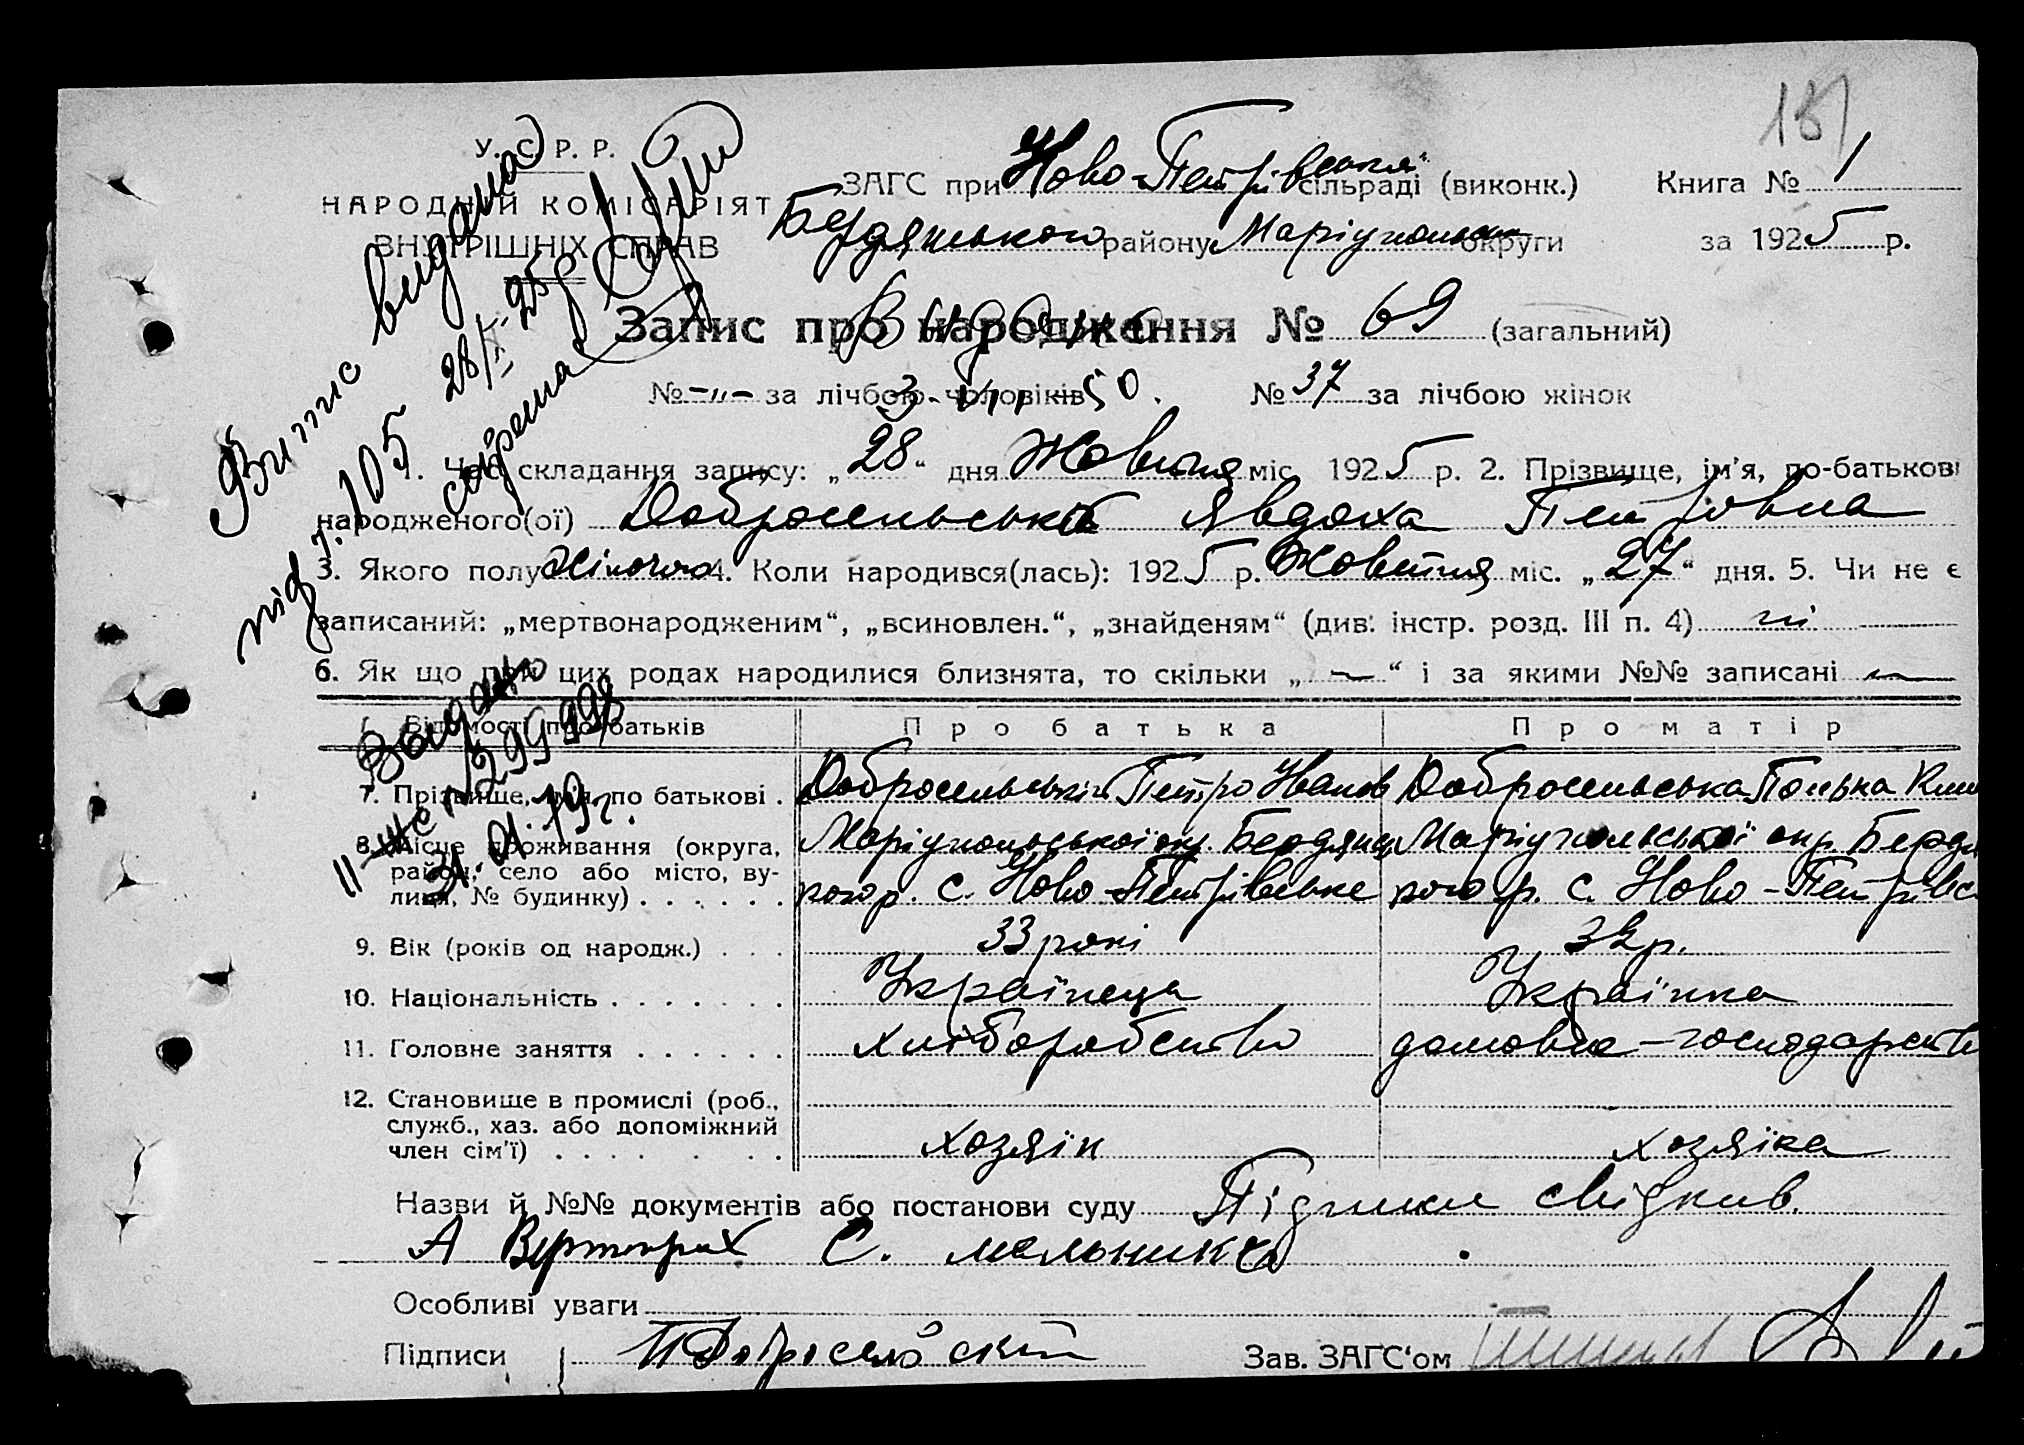 181
У. С. Р. Р.
НАРОДНІЙ КОМІСАРІЯТ
ВНУТРІШНІХ СПРАВ
ЗАГС при Ново-Петрівській сільраді (виконк.) Книга № 1
Бердянського району Маріупольськ округи за 1925 р.
Запис про народження № 69 (загальний)
Видано
№ -"- за лічбою чоловіків № 37 за лічбою жінок
3-VIII-50.
Витис видана
під ч. 105 28/
1. Час складання запису: „28“ дня Жовтня міс. 1925 р. 2. Прізвище, ім'я, по-батькові
народженого(ої) Добросельська Явдоха Петровна
3. Якого полу жіночого 4. Коли народився(лась): 1925 р. Жовтня міс. „27“ дня. 5. Чи не є
записаний: „мертвонародженим“, „всиновлен.“, „знайденям“ (див. інстр. розд. III п. 4) ні
6. Як що при цих родах народилися близнята, то скільки „—“ і за якими №№ записані —
Відомості про батьків Про батька Про матір
Выдано
299998
31.01.79г.
7. Прізвище, ім'я, по батькові . Добросельський Петро Иванов Добросельська Полька Клим
8. Місце проживання (округа, Маріупольської окр. Бердянсь Маріупольської окр. Бердя
район, село або місто, ву- кого р. с. Ново-Петрівське кого р. с. Ново-Петрівс
лиця, № будинку) . . . . . .
9. Вік (років од народж.) . . . 33 роки 32 р.
10. Національність . . . . . . . Українець Українка
11. Головне заняття . . . . . . хліборобство домовье-господарств
12. Становище в промислі (роб.,
служб., хаз. або допоміжний
член сім'ї) . . . . . . . хозяїн хозяїка
Назви й №№ документів або постанови суду Підписи свідків.
А С. Мельників
Особливі уваги
Підписи П Добросельский Зав. ЗАГС'ом